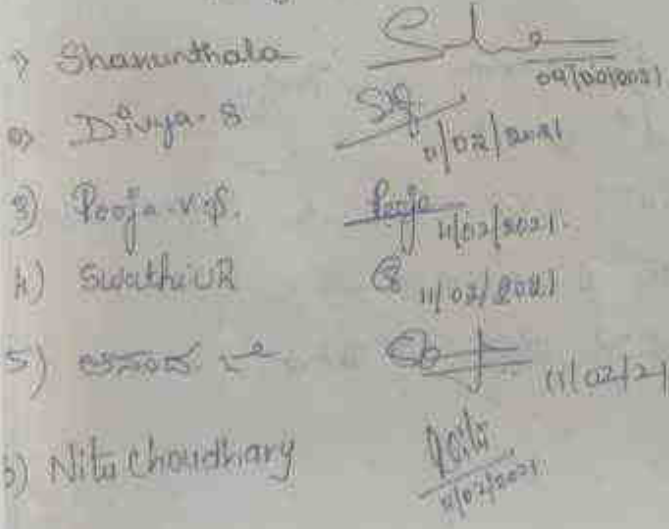 1) Shakunthala 09/02/2021
2) Divya. S 11/02/2021
3) Pooja. V. S. Pooja 11/02/2021.
4) Swathi UR 11/02/2021
5) 11/02/21
6) Nitu Choudhary Nitu 11/02/2021.